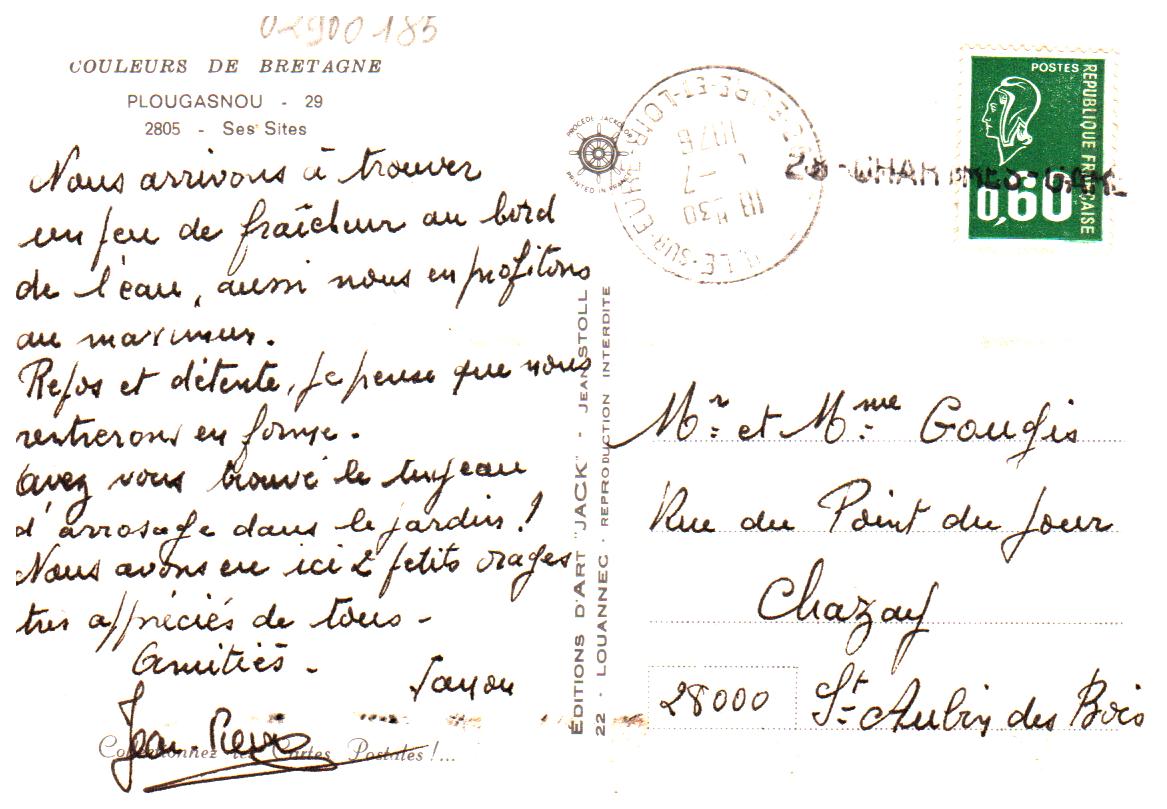 02900185
COULEURS DE BRETAGNE
PLOUGASNOU - 29
2805 - Ses Sites
Nous arrivons à trouver
un peu de fraîcheur au bord
de l'eau, aussi nous en profitons
au maximum.
Repos et détente, je pense que nous
rentrerons en forme.
Avez vous trouvé le tuyeau
d'arrosage dans le jardin!
Nous avons eu ici 2 petits orages
très appréciés de tous -
Amitiés -
Jean-Pierre
Collectionnez les Cartes Postales !...
ÉDITIONS D'ART "JACK" - JEAN STOLL
22 - LOUANNEC - REPRODUCTION INTERDITE
PROCÉDÉ JACKOLOR
PRINTED IN FRANCE
EURE-ET-LOIR
18 H 30
-7
1976
28 - CHARTRES-GARE
POSTES
REPUBLIQUE FRANÇAISE
0,60
Mr et Mme Gougis
Rue du Point du Jour
Chazay
28000 St Aubin des Bois